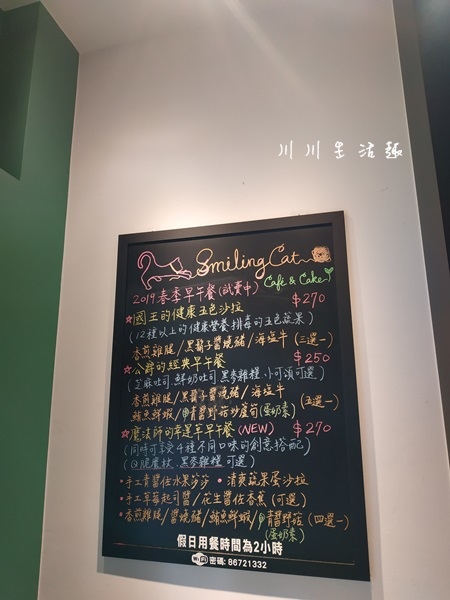 川川生活趣
Smiling Cat
Café & Cake
2019春季早午餐(試賣中) $270
☆國王的健康五色沙拉
(12種以上的健康營養排毒的五色蔬果)
香煎雞腿/黑鬍子醬燒豬/海塩牛 (三選一)
☆公爵的經典早午餐 $250
(芝麻吐司.鮮奶吐司.黑麥雜糧.小可頌可選)
香煎雞腿/黑鬍子醬燒豬/海塩牛
鮪魚鮮蝦/青醬野菇炒蘆筍(蛋奶素) (五選一)
☆魔法師的幸運年早午餐(NEW) $270
(同時可享受4種不同口味的創意搭配)
(Q脆麿杖.黑麥雜糧可選)
•手工青醬佐水果莎莎 •清爽蔬果蛋沙拉
•手工草莓起司醬/花生醬佐香蕉(可選)
•香煎雞腿/醬燒豬/鮪魚鮮蝦/青醬野菇 (四選一)
(蛋奶素)
假日用餐時間為2小時
Wi Fi 密碼: 86721332